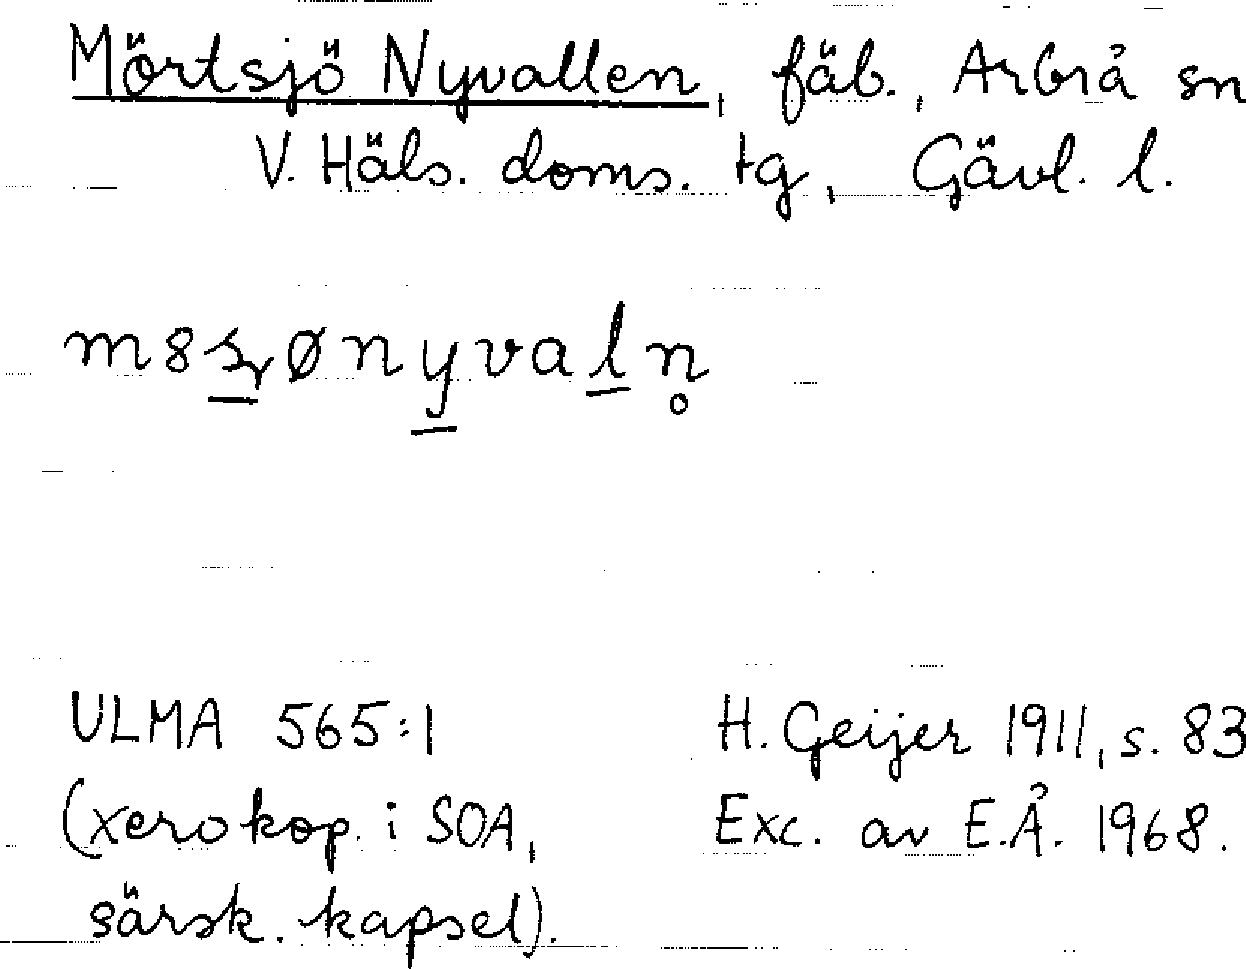 Mörtsjö Nyvallen, fäb., Arbrå sn
V. Häls. doms. tg, Gävl. l.
ULMA 565:1 H. Geijer 1911, s. 83
(xerokop. i SOA, Exc. av E.Å. 1968.
särsk. kapsel).